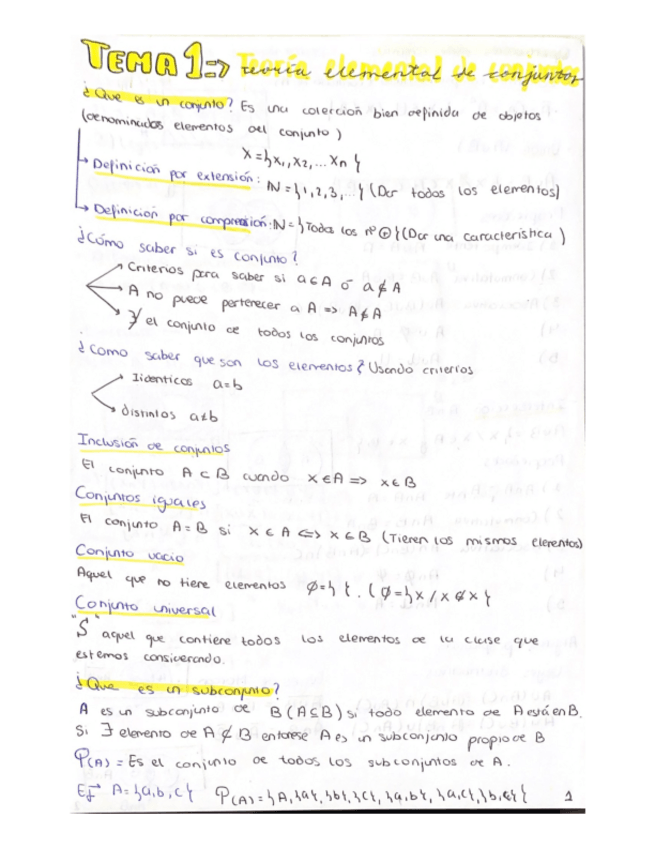 TEMA 1 => Teoría elemental de conjuntos
¿Que es un conjunto? Es una colección bien definida de objetos
(denominados elementos del conjunto)
X = {x₁, x₂, ... xn}
Definición por extensión: N = {1, 2, 3, ...} (Dar todos los elementos)
Definición por compresión: N = {Todos los nº ⊕} (Dar una característica)
¿Cómo saber si es conjunto?
Criterios para saber si a ∈ A ó a ∉ A
A no puede pertenecer a A => A ∉ A
∄ el conjunto de todos los conjuntos
¿Como saber que son los elementos? Usando criterios
Iidenticos a=b
distintos a≠b
Inclusión de conjuntos
El conjunto A ⊂ B cuando x ∈ A => x ∈ B
Conjuntos iguales
El conjunto A = B si x ∈ A <=> x ∈ B (Tienen los mismos elementos)
Conjunto vacio
Aquel que no tiene elementos Ø = { }. (Ø = {x / x ∉ x}
Conjunto universal
"S" aquel que contiene todos los elementos de la clase que
estemos considerando.
¿Que es un subconjunto?
A es un subconjunto de B (A ⊆ B) si todo elemento de A está en B.
Si ∃ elemento de A ∉ B entonese A es un subconjunto propio de B
P(A) = Es el conjunto de todos los subconjuntos de A.
Ej A = {a, b, c} P(A) = {A, {a}, {b}, {c}, {a, b}, {a, c}, {b, c}}
1